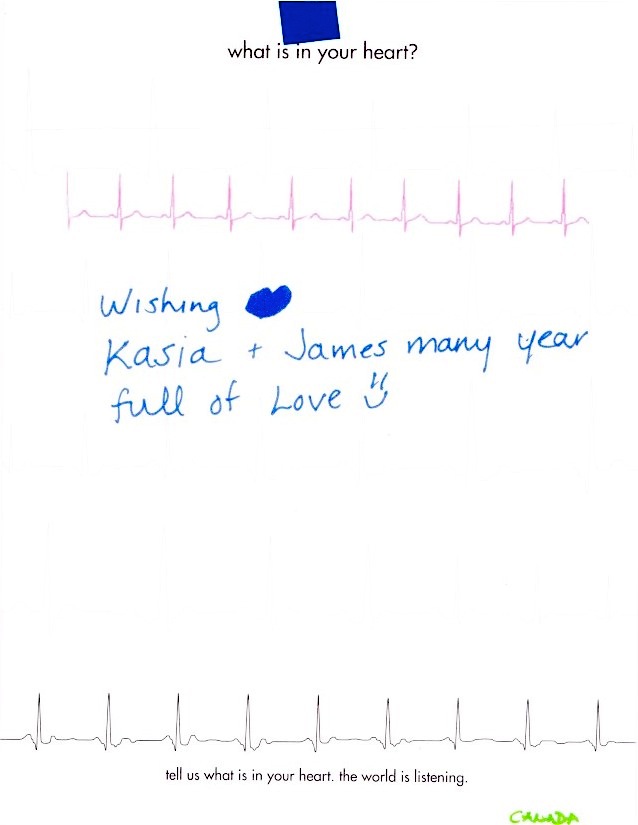 what is in your heart?
Wishing
Kasia + James many year
full of Love
tell us what is in your heart. the world is listening.
CANADA